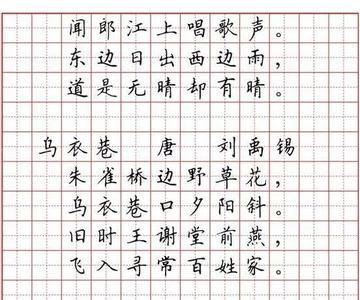 闻郎江上唱歌声。
东边日出西边雨，
道是无晴却有晴。
乌衣巷 唐 刘禹锡
朱雀桥边野草花，
乌衣巷口夕阳斜。
旧时王谢堂前燕，
飞入寻常百姓家。